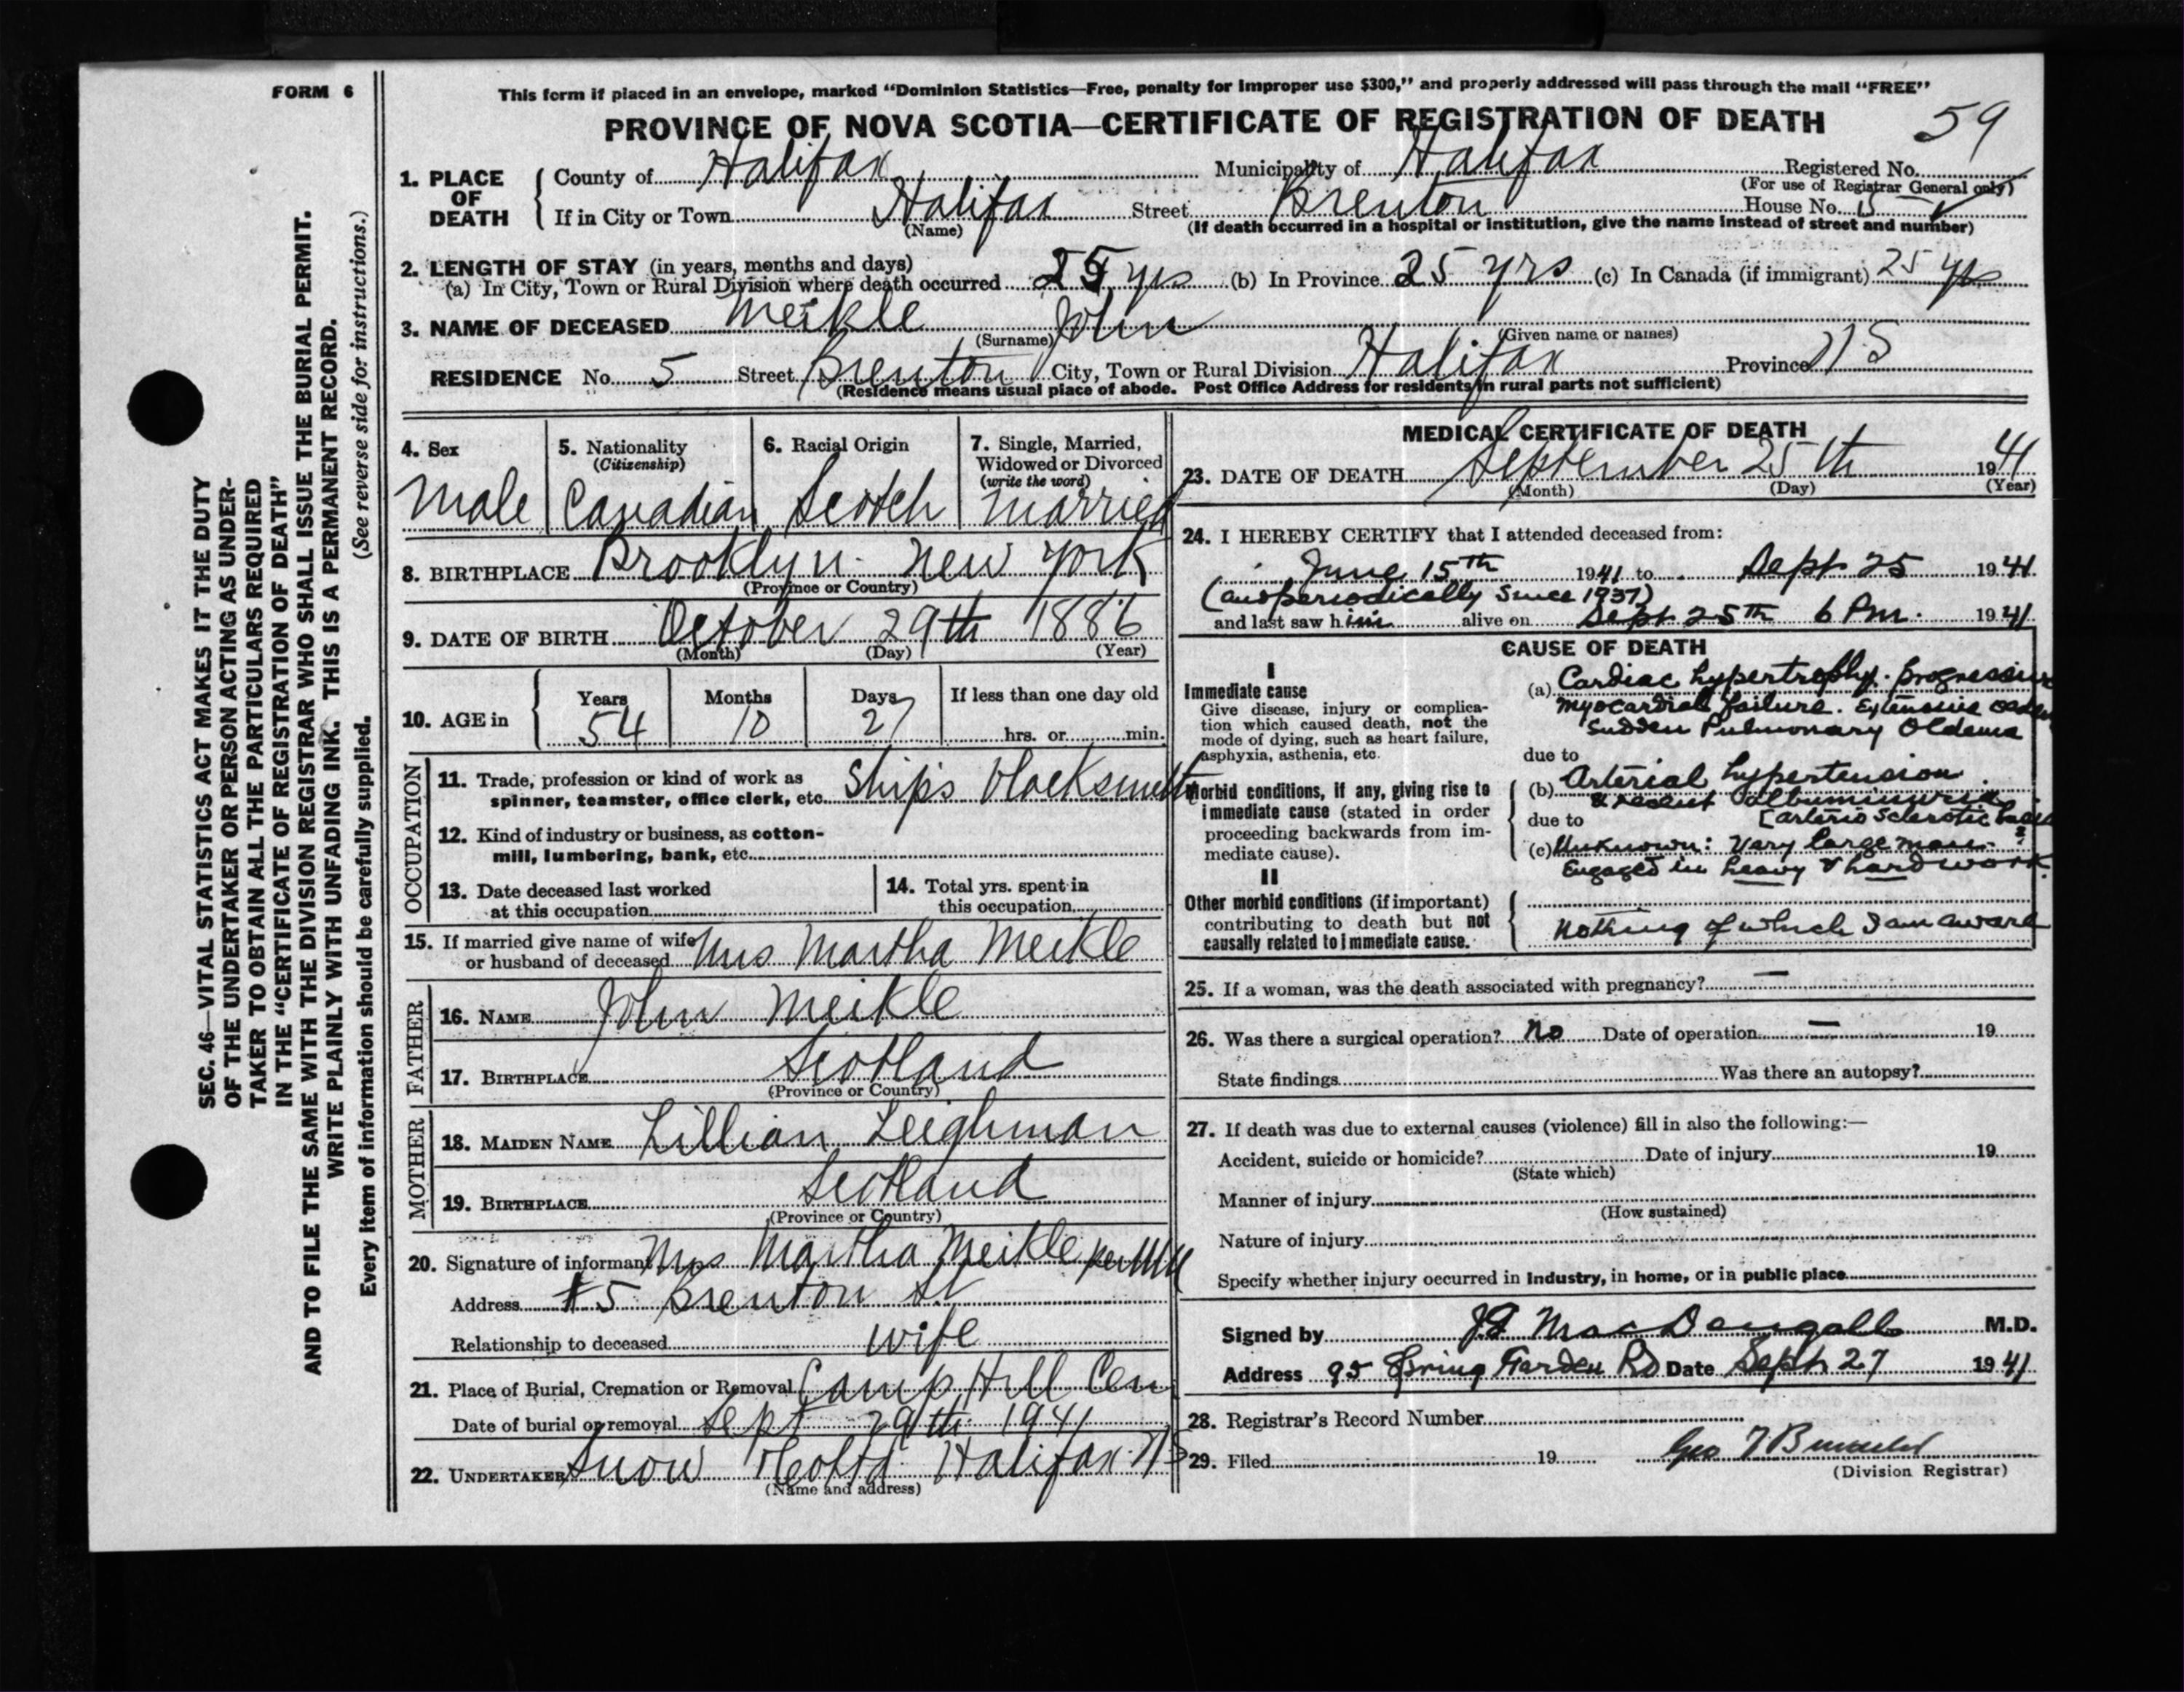 FORM 6
This form if placed in an envelope, marked "Dominion Statistics—Free, penalty for improper use $300," and properly addressed will pass through the mail "FREE"
PROVINCE OF NOVA SCOTIA—CERTIFICATE OF REGISTRATION OF DEATH 59
1. PLACE OF DEATH
County of Halifax Municipality of Halifax Registered No.
(For use of Registrar General only)
If in City or Town Halifax Street Brenton House No. 5
(Name) (If death occurred in a hospital or institution, give the name instead of street and number)
2. LENGTH OF STAY (in years, months and days)
(a) In City, Town or Rural Division where death occurred 25 yrs (b) In Province 25 yrs (c) In Canada (if immigrant) 25 yrs
3. NAME OF DECEASED Meikle John
(Surname) (Given name or names)
RESIDENCE No. 5 Street Brenton City, Town or Rural Division Halifax Province NS
(Residence means usual place of abode. Post Office Address for residents in rural parts not sufficient)
4. Sex
Male
5. Nationality
(Citizenship)
Canadian
6. Racial Origin
Scotch
7. Single, Married,
Widowed or Divorced
(write the word)
Married
8. BIRTHPLACE Brooklyn New York
(Province or Country)
9. DATE OF BIRTH October 29th 1886
(Month) (Day) (Year)
10. AGE in
Years Months Days If less than one day old
54 10 27 hrs. or min.
OCCUPATION
11. Trade, profession or kind of work as
spinner, teamster, office clerk, etc. Ship's blacksmith
12. Kind of industry or business, as cotton-
mill, lumbering, bank, etc.
13. Date deceased last worked
at this occupation
14. Total yrs. spent in
this occupation
15. If married give name of wife
or husband of deceased Mrs Martha Meikle
FATHER
16. NAME John Meikle
17. BIRTHPLACE Scotland
(Province or Country)
MOTHER
18. MAIDEN NAME Lillian Leighman
19. BIRTHPLACE Scotland
(Province or Country)
20. Signature of informant Mrs Martha Meikle per
Address #5 Brenton St
Relationship to deceased wife
21. Place of Burial, Cremation or Removal Camp Hill Cem
Date of burial or removal Sept 29th 1941
22. UNDERTAKER Snow & Co Ltd Halifax NS
(Name and address)
MEDICAL CERTIFICATE OF DEATH
23. DATE OF DEATH September 25th 1941
(Month) (Day) (Year)
24. I HEREBY CERTIFY that I attended deceased from:
June 15th 1941 to Sept 25 1941
(and periodically since 1937)
and last saw him alive on Sept 25th 6 Pm. 1941
CAUSE OF DEATH
I
Immediate cause
Give disease, injury or complica-
tion which caused death, not the
mode of dying, such as heart failure,
asphyxia, asthenia, etc.
(a) Cardiac hypertrophy. progressive
myocardial failure. Extensive
Sudden Pulmonary Oldema
due to
Morbid conditions, if any, giving rise to
immediate cause (stated in order
proceeding backwards from im-
mediate cause).
(b) Arterial hypertension
& recent albuminuria
due to [arterio sclerotic
(c) Unknown: Very large man.
Engaged in heavy & hard work.
II
Other morbid conditions (if important)
contributing to death but not
causally related to immediate cause.
Nothing of which I am aware
25. If a woman, was the death associated with pregnancy? —
26. Was there a surgical operation? No Date of operation — 19
State findings Was there an autopsy?
27. If death was due to external causes (violence) fill in also the following:—
Accident, suicide or homicide? Date of injury 19
(State which)
Manner of injury
(How sustained)
Nature of injury
Specify whether injury occurred in industry, in home, or in public place
Signed by MacDougall M.D.
Address 95 Spring Garden Rd Date Sept 27 1941
28. Registrar's Record Number
29. Filed 19 Geo
(Division Registrar)
SEC. 46—VITAL STATISTICS ACT MAKES IT THE DUTY
OF THE UNDERTAKER OR PERSON ACTING AS UNDER-
TAKER TO OBTAIN ALL THE PARTICULARS REQUIRED
IN THE "CERTIFICATE OF REGISTRATION OF DEATH"
AND TO FILE THE SAME WITH THE DIVISION REGISTRAR WHO SHALL ISSUE THE BURIAL PERMIT.
WRITE PLAINLY WITH UNFADING INK. THIS IS A PERMANENT RECORD.
(See reverse side for instructions.)
Every item of information should be carefully supplied.